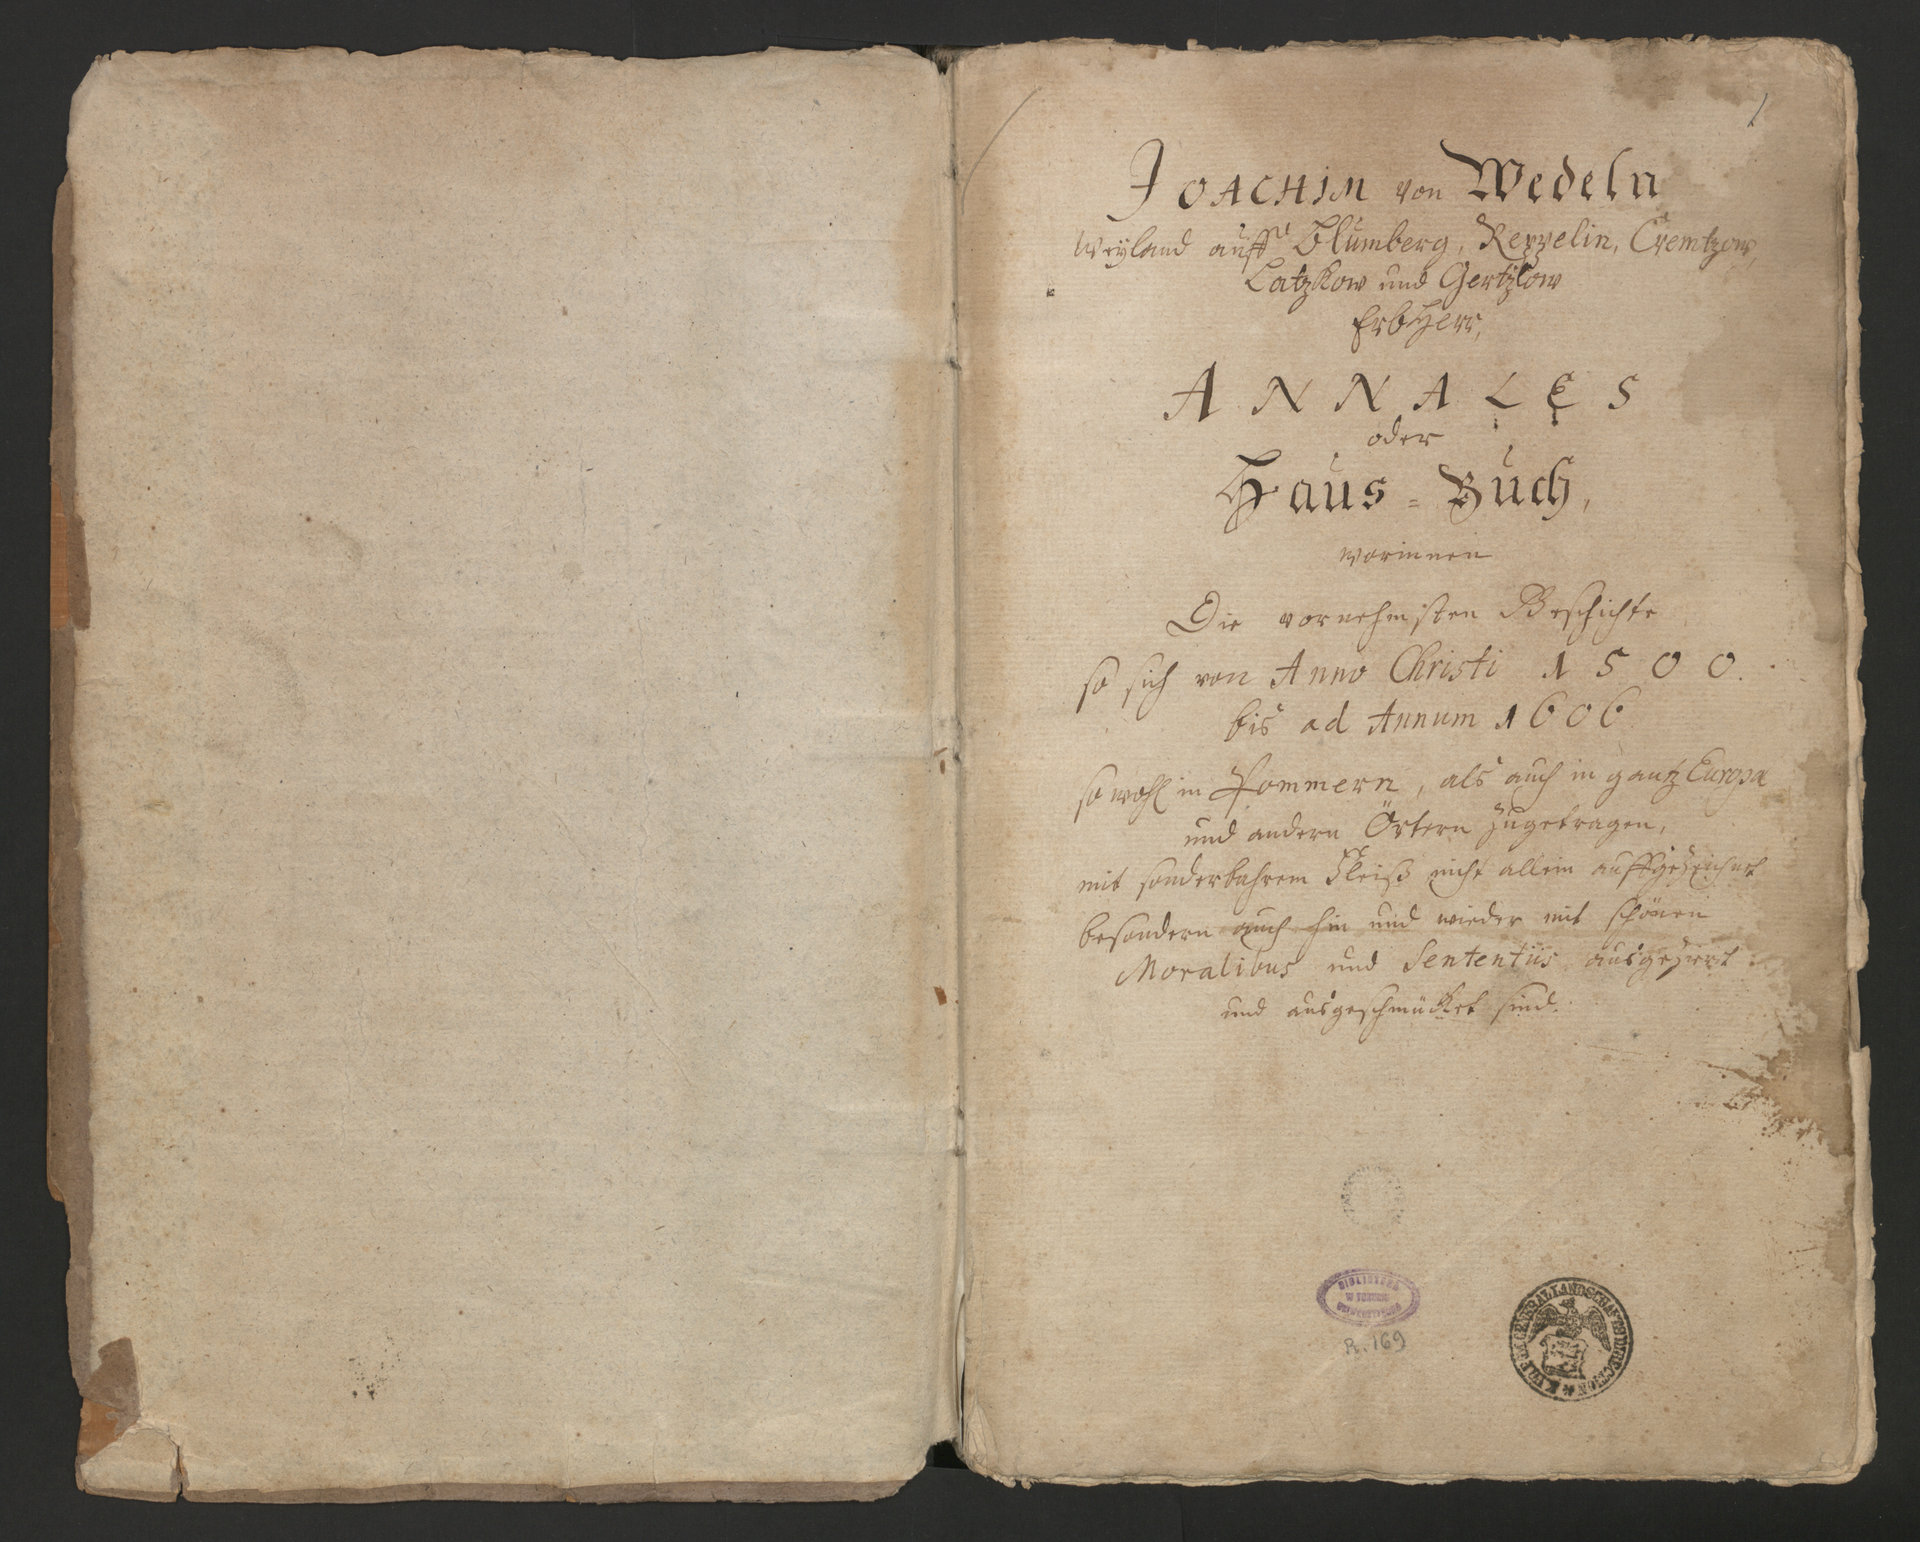 1
JOACHIM von Wedeln
Weyland auff Blumberg, Reppelin, Cremtzow,
Latzkow und Gertzlow
ErbHerr,
ANNALES
oder
Haus=Buch,
worinnen
Die vornehmsten Geschichte
so sich von Anno Christi 1500.
bis ad Annum 1606
sowohl in Pommern, als auch in gantz Europa
und andern Örtern zugetragen,
mit sonderbahrem Fleiß nicht allein auffgezeichnet
besondern auch hin und wieder mit schönen
Moralibus und Sententiis ausgeziert
und ausgeschmücket sind.
BIBLIOTEKA
W TORUNIU
UNIWERSYTECKA
R. 169
GENERALLANDSCHAFTSDIRECTION